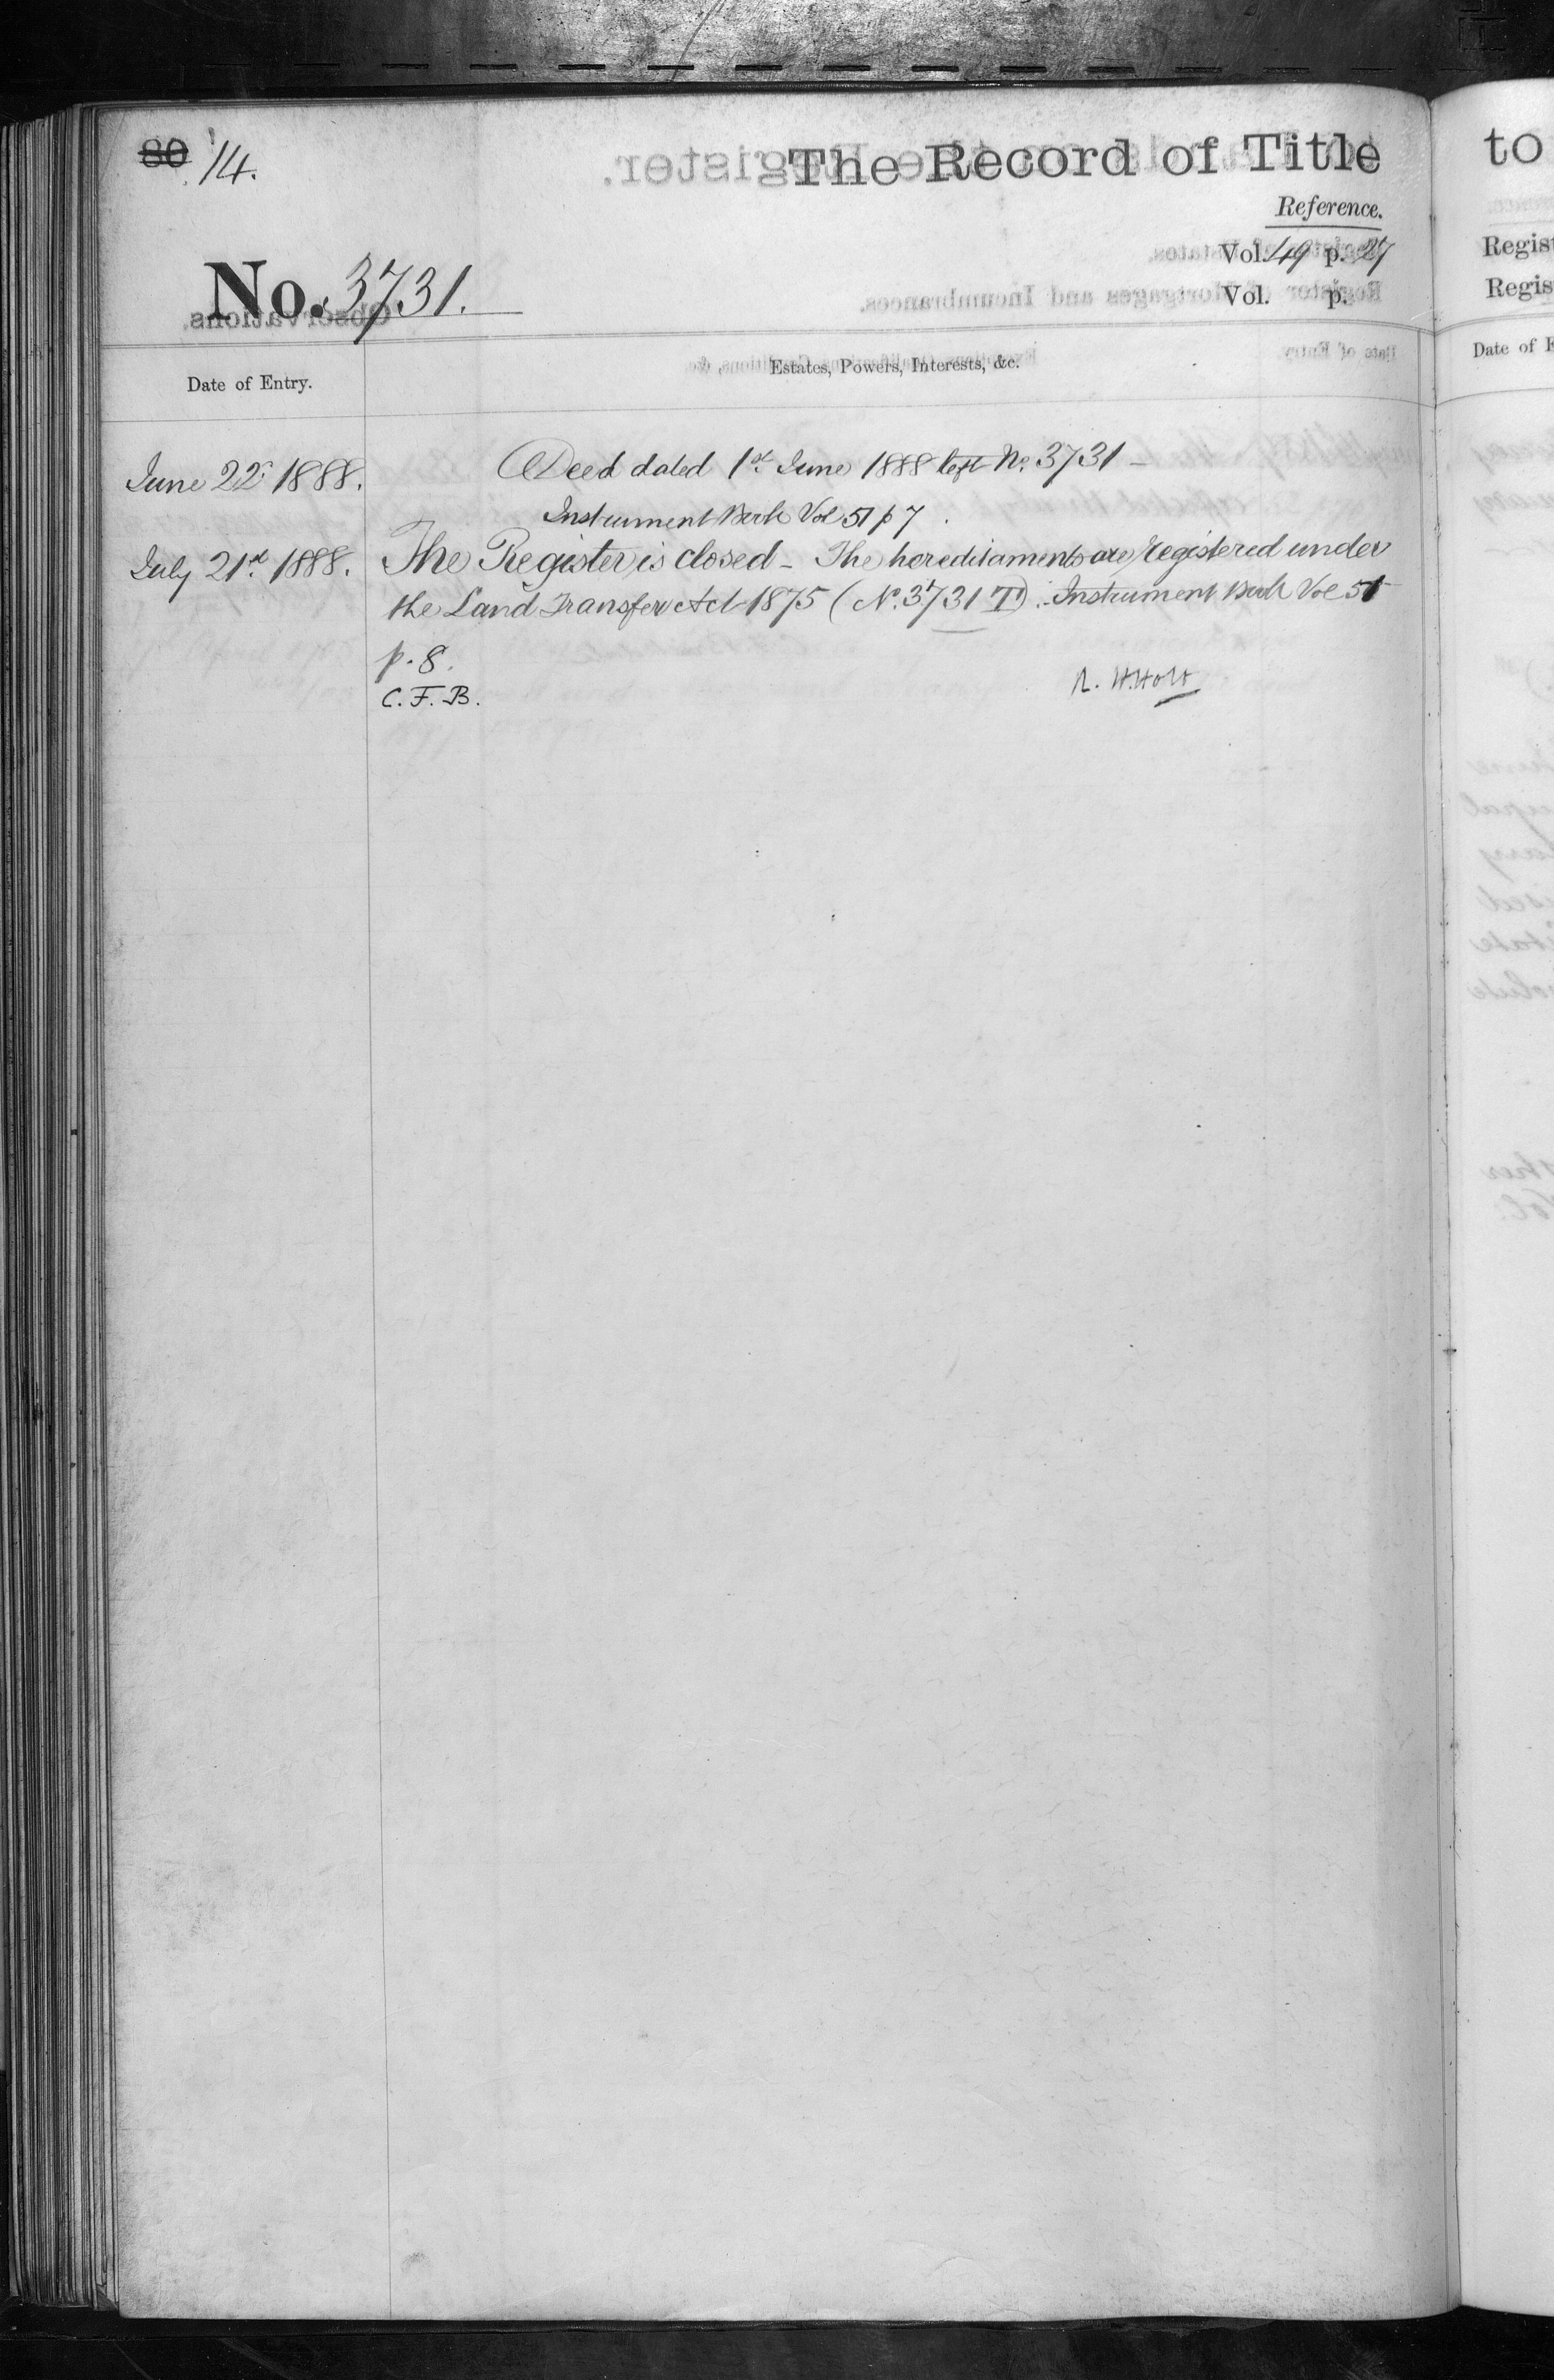 80 14.
The Record of Title
Reference.
Vol. 49 p. 27
Vol. p.
No. 3731.
Date of Entry.
Estates, Powers, Interests, &c.
June 22d 1888.
Deed dated 1st June 1888 left No. 3731 -
Instrument Book Vol 51 p 7.
July 21st 1888.
The Register is closed - The hereditaments are registered under
the Land Transfer Act 1875 (No. 3731 T). Instrument Book Vol 51
p. 8.
C. F. B.
R. H. Holt
to
Regist
Regis
Date of E